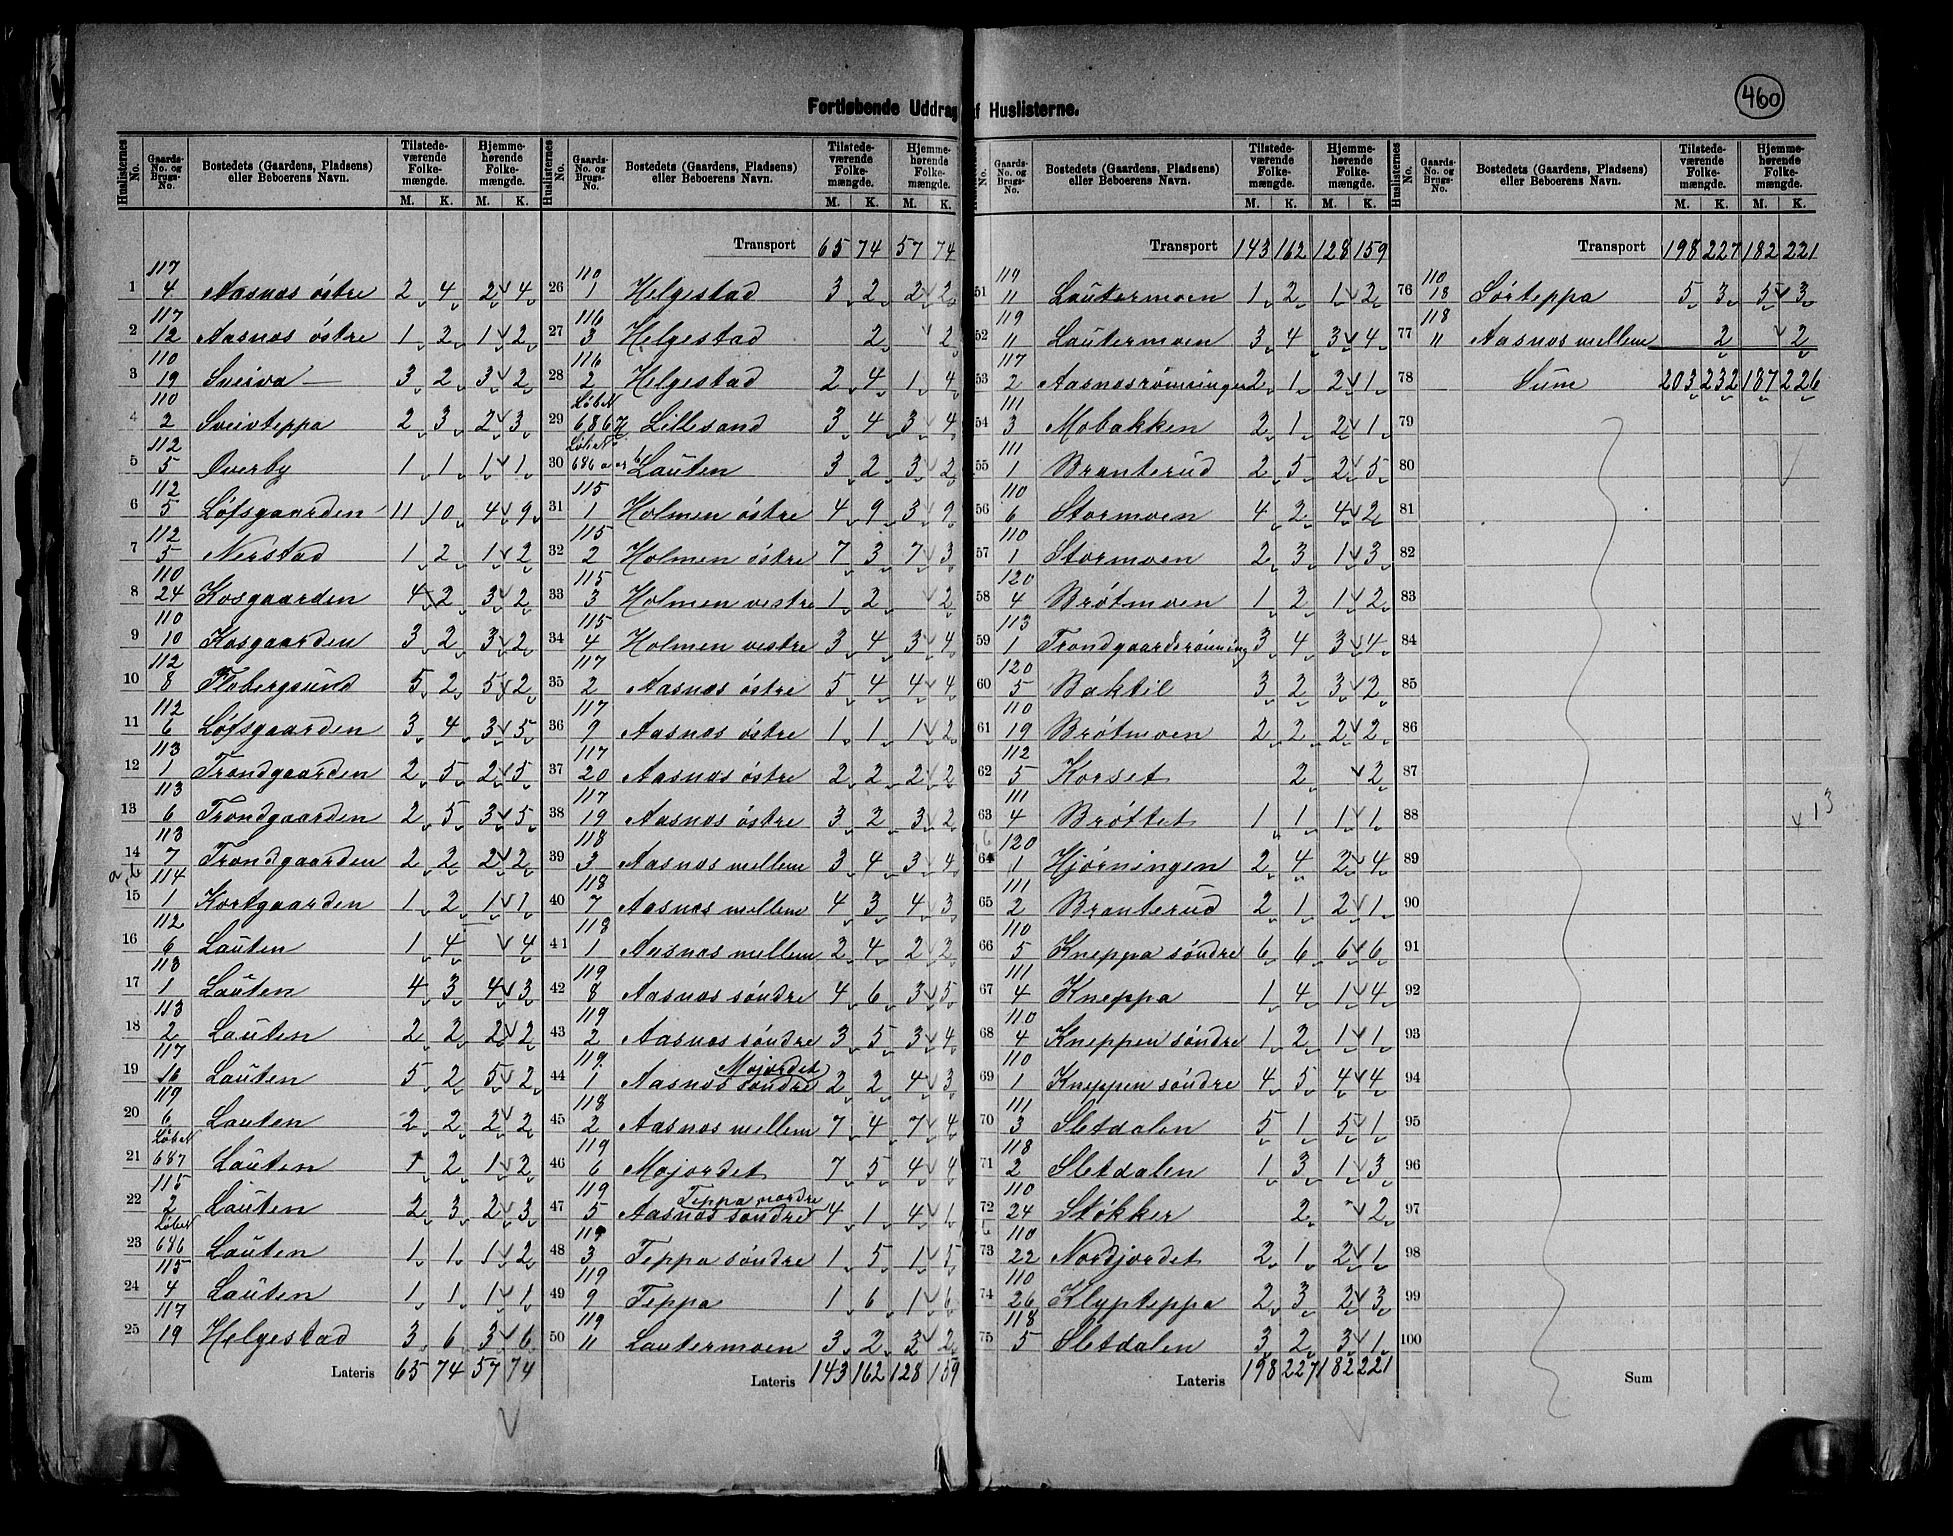 460
Fortløbende Uddrag af Huslisterne.
Huslisternes No. Gaards-No. og Brugs-No. Bostedets (Gaardens, Pladsens) eller Beboerens Navn. Tilstedeværende Folkemængde. Hjemmehørende Folkemængde.
M. K. M. K.
1 117 4 Aasnes østre 2 4 2 4
2 117 12 Aasnes østre 1 2 1 2
3 110 19 Sveiva 3 2 3 2
4 110 2 Sveivteppa 2 3 2 3
5 112 5 Overby 1 1 1 1
6 112 5 Løfsgaarden 11 10 4 9
7 112 5 Nerstad 1 2 1 2
8 110 24 Kosgaarden 4 2 3 2
9 110 10 Kosgaarden 3 2 3 2
10 112 8 Flobergsund 5 2 5 2
11 112 6 Løfsgaarden 3 4 3 5
12 113 1 Trondgaarden 2 5 2 5
13 113 6 Trondgaarden 2 5 3 5
14 113 7 Trondgaarden 2 2 2 2
15 114 1 Kortgaarden 1 2 1 1
16 112 6 Lauten 1 4 4
17 113 1 Lauten 4 3 4 3
18 113 2 Lauten 2 2 2 2
19 117 16 Lauten 5 2 5 2
20 119 6 Lauten 2 2 2 2
21 LøbeN 687 Lauten 1 2 1 2
22 115 2 Lauten 2 3 2 3
23 LøbeN 686 Lauten 1 1 1 2
24 115 4 Lauten 1 1 1 1
25 117 19 Helgestad 3 6 3 6
Lateris 65 74 57 74
Huslisternes No. Gaards-No. og Brugs-No. Bostedets (Gaardens, Pladsens) eller Beboerens Navn. Tilstedeværende Folkemængde. Hjemmehørende Folkemængde.
M. K. M. K.
Transport 65 74 57 74
26 110 1 Helgestad 3 2 2 2
27 116 3 Helgestad 2 2
28 116 2 Helgestad 2 4 1 4
29 LøbeN 686 Lillesand 3 4 3 4
30 LøbeN 686 Lauten 3 2 3 2
31 115 1 Holmen østre 4 9 3 9
32 115 2 Holmen østre 7 3 7 3
33 115 3 Holmen vestre 1 2 2
34 115 4 Holmen vestre 3 4 3 4
35 117 2 Aasnes østre 5 4 4 4
36 117 9 Aasnes østre 1 1 1 2
37 117 20 Aasnes østre 2 2 2 2
38 117 19 Aasnes østre 3 2 3 2
39 118 3 Aasnes mellem 3 4 3 4
40 118 7 Aasnes mellem 4 3 4 3
41 118 1 Aasnes mellem 2 4 2 2
42 119 8 Aasnes søndre 4 6 3 5
43 119 2 Aasnes søndre 3 5 3 4
44 119 1 Aasnes søndre Mojordet 2 2 4 3
45 118 2 Aasnes mellem 7 4 7 4
46 119 6 Mojordet 7 5 4 4
47 119 5 Aasnes søndre Teppa nordre 4 1 4 1
48 119 3 Teppa søndre 1 5 1 5
49 119 9 Teppa 1 6 1 6
50 119 11 Lautermoen 3 2 3 2
Lateris 143 162 128 159
Gaards-No. og Brugs-No. Bostedets (Gaardens, Pladsens) eller Beboerens Navn. Tilstedeværende Folkemængde. Hjemmehørende Folkemængde.
M. K. M. K.
Transport 143 162 128 159
51 119 11 Lautermoen 1 2 1 2
52 119 11 Lautermoen 3 4 3 4
53 117 2 Aasnesrømningen 2 1 2 1
54 111 3 Mobakken 2 1 2 1
55 111 1 Branterud 2 5 2 5
56 110 6 Stormoen 4 2 4 2
57 110 1 Stormoen 2 3 1 3
58 120 4 Brøtmoen 1 2 1 2
59 113 1 Trondgaardsrømning 3 4 3 4
60 120 5 Baktil 3 2 3 2
61 110 19 Brøtmoen 2 2 2 2
62 112 5 Korset 2 2
63 111 4 Brøttet 1 1 1 1
64 120 1 Hjørningen 2 4 2 4
65 111 2 Branterud 2 1 2 1
66 110 5 Kneppa søndre 6 6 6 6
67 111 4 Kneppa 1 4 1 4
68 110 4 Kneppen søndre 1 2 1 1
69 110 1 Kneppen søndre 4 5 4 4
70 111 3 Sletdalen 5 1 5 1
71 118 2 Sletdalen 1 3 1 3
72 110 24 Støkker 2 2
73 110 22 Nordjordet 2 1 2 1
74 110 26 Klypteppa 2 3 2 3
75 118 5 Sletdalen 3 2 3 1
Lateris 198 227 182 221
Huslisternes No. Gaards-No. og Brugs-No. Bostedets (Gaardens, Pladsens) eller Beboerens Navn. Tilstedeværende Folkemængde. Hjemmehørende Folkemængde.
M. K. M. K.
Transport 198 227 182 221
76 110 18 Sørteppa 5 3 5 3
77 118 11 Aasnes mellem 2 2
78 Sum 203 232 187 226
79
80
81
82
83
84
85
86
87
88 13
89
90
91
92
93
94
95
96
97
98
99
100
Sum